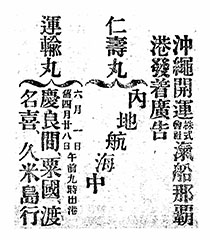 沖繩開運株式會社滊船那覇
港發着廣告
仁壽丸
內地航海中
運輸丸
六月一日
舊四月廿八日午前九時出港
慶良間、粟國、渡
名喜、久米島行